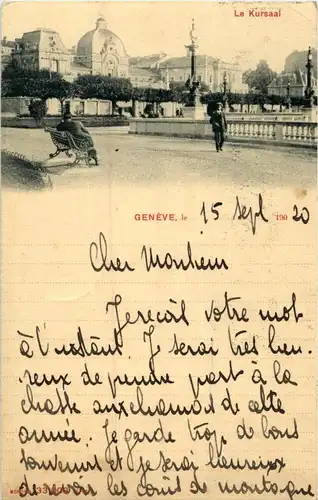 Le Kursaal
GENÈVE, le 15 Sept 190 20
Cher Monheur
Je reçoit votre mot
à l'instant. Je serai très heu-
reux de prendre part à la
chasse aux chamois de cette
année. Je garde trop de bons
souvenirs et je serai heureux
de revoir les coins de montagne